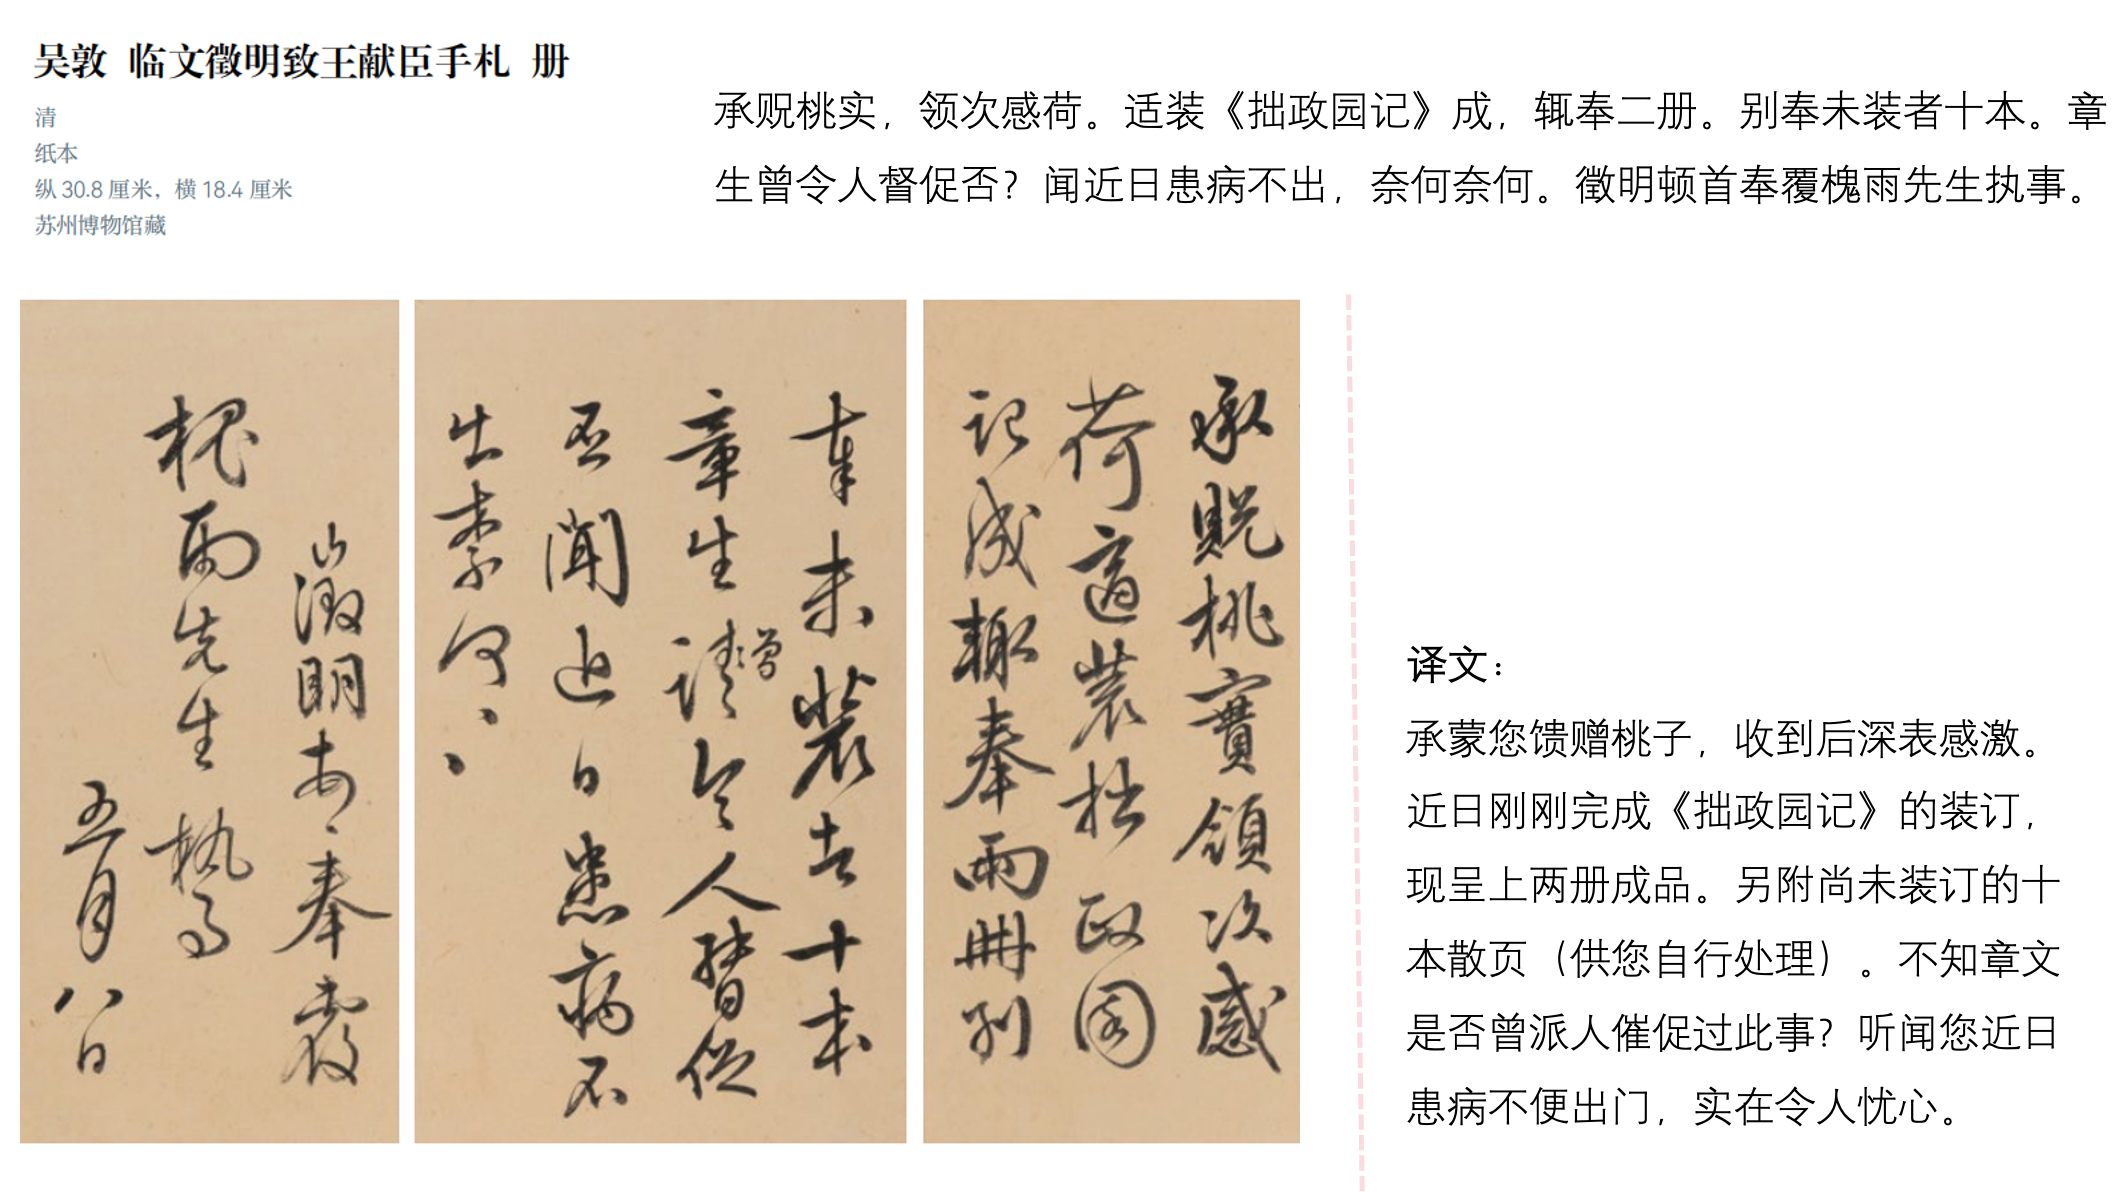 吴敦 临文徵明致王献臣手札 册
清
纸本
纵 30.8 厘米，横 18.4 厘米
苏州博物馆藏
承贶桃实，领次感荷。适装《拙政园记》成，辄奉二册。别奉未装者十本。章
生曾令人督促否？闻近日患病不出，奈何奈何。徵明顿首奉覆槐雨先生执事。
承貺桃實領次感
荷適裝拙政園
記成輙奉兩冊別
奉未装者十本
章生
曾
令人督促
否聞近日患病不
出柰何
徵明頓首奉覆
槐雨先生執事
五月八日
译文：
承蒙您馈赠桃子，收到后深表感激。
近日刚刚完成《拙政园记》的装订，
现呈上两册成品。另附尚未装订的十
本散页（供您自行处理）。不知章文
是否曾派人催促过此事？听闻您近日
患病不便出门，实在令人忧心。